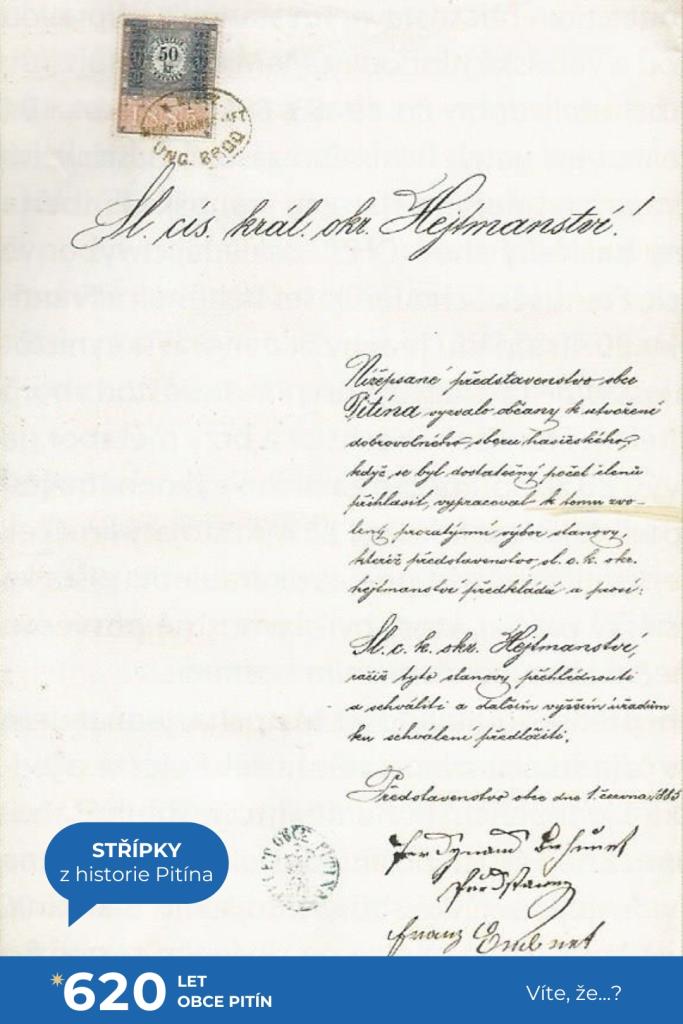 50
kr.
UNG. BROD
Sl. cís. král. okr. Hejtmanství!
Nížepsané představenstvo obce
Pitína vyzvalo občany k utvoření
dobrovolného sboru hasičského,
když se byl dostatečný počet členů
přihlásil, vypracoval k tomu zvo-
lený prozatýmní výbor stanovy,
kteréž představenstvo sl. c. k. okr.
hejtmanství předkládá a prosí:
Sl. c. k. okr. Hejtmanství,
račiž tyto stanovy přehlédnouti
a schváliti a dalším vyšším úřadům
ku schválení předložiti.
Představenstvo obce dne 1. června 1885
Franz
STŘÍPKY
z historie Pitína
*620 LET
OBCE PITÍN
Víte, že...?